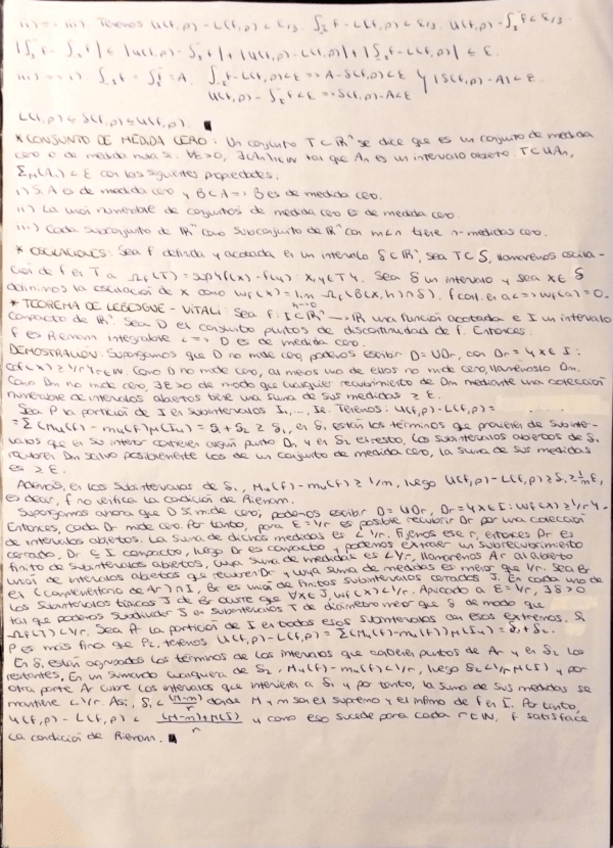 ii) => iii) Tenemos U(f,p) - L(f,p) < ε/3. ∫f - L(f,p) < ε/3. U(f,p) - ∫f < ε/3.
|∫f - ∫f| ≤ |U(f,p) - ∫f| + |U(f,p) - L(f,p)| + |∫f - L(f,p)| ≤ ε.
iii) => i). ∫f = ∫f = A. ∫f - L(f,p) < ε => A - S(f,p) < ε } |S(f,p) - A| < ε.
U(f,p) - ∫f < ε => S(f,p) - A < ε
L(f,p) ≤ S(f,p) ≤ U(f,p). ■
* CONJUNTO DE MEDIDA CERO: Un conjunto T⊂ℝⁿ se dice que es un conjunto de medida
cero o de medida nula si ∀ε>0, ∃(An)n∈ℕ tal que An es un intervalo abierto. T⊂UAn,
Σμ(An) < ε con las siguientes propiedades:
i) Si A es de medida cero y B⊂A => B es de medida cero.
ii) La unión numerable de conjuntos de medida cero es de medida cero.
iii) Cada subconjunto de ℝᵐ como subconjunto de ℝⁿ con m<n tiene n-medidas cero.
* OSCILACIONES: Sea f definida y acotada en un intervalo S⊂ℝⁿ, sea T⊂S, llamaremos oscila-
ción de f en T a Ωf(T) = sup{f(x) - f(y): x,y∈T}. Sea S un intervalo y sea x∈S
definimos la oscilación de x como wf(x) = lim h→0 Ωf(B(x,h)∩S). f cont. en a <=> wf(a)=0.
* TEOREMA DE LEBESGUE-VITALI: Sea f: I⊂ℝⁿ → ℝ una función acotada e I un intervalo
compacto de ℝⁿ. Sea D el conjunto puntos de discontinuidad de f. Entonces:
f es Riemann integrable <=> D es de medida cero.
DEMOSTRACIÓN: Supongamos que D no mide cero, podemos escribir D = UDr, con Dr = {x∈I:
wf(x) ≥ 1/r} r∈ℕ. Como D no mide cero, al menos uno de ellos no mide cero, llamémoslo Dm.
Como Dm no mide cero, ∃ε>0 de modo que cualquier recubrimiento de Dm mediante una colección
numerable de intervalos abiertos tiene una suma de sus medidas ≥ ε.
Sea P la partición de I en subintervalos I1,..., Ie. Tenemos: U(f,p) - L(f,p) =
= Σ(Mk(f) - mk(f))μ(Ik) = S1 + S2 ≥ S1, en S1 están los términos que provienen de subinter-
valos que en su interior contienen algún punto Dm y en S2 el resto. Los subintervalos abiertos de S1
recubren Dm salvo posiblemente los de un conjunto de medida cero, la suma de sus medidas
es ≥ ε.
Además, en los subintervalos de S1, Mk(f) - mk(f) ≥ 1/m, luego U(f,p) - L(f,p) ≥ S1 ≥ 1/m ε,
es decir, f no verifica la condición de Riemann.
Supongamos ahora que D sí mide cero; podemos escribir D = UDr, Dr = {x∈I: wf(x) ≥ 1/r}.
Entonces, cada Dr mide cero. Por tanto, para ε = 1/r es posible recubrir Dr por una colección
de intervalos abiertos. La suma de dichas medidas es < 1/r. Fijemos ese r, entonces Dr es
cerrado, Dr ⊆ I compacto, luego Dr es compacto, podemos extraer un subrecubrimiento
finito de subintervalos abiertos, cuya suma de medidas es < 1/r, llamaremos Ar al abierto
unión de intervalos abiertos que recubren Dr y cuya suma de medidas es menor que 1/r. Sea Br
el (complementario de Ar)∩I, Br es unión de finitos subintervalos cerrados J. En cada uno de
los subintervalos J de Br ocurre que ∀x∈J, wf(x) < 1/r. Aplicado a ε = 1/r, ∃δ>0
tal que podemos subdividir J en subintervalos T de diámetro menor que δ de modo que
Ωf(T) < 1/r. Sea Pr la partición de I en todos esos subintervalos con esos extremos. Si
P es más fina que Pr, tenemos U(f,p) - L(f,p) = Σ(Mk(f) - mk(f))μ(Ik) = S1 + S2.
En S1 están agrupados los términos de los intervalos que contienen puntos de Ar y en S2 los
restantes. En un sumando cualquiera de S2, Mk(f) - mk(f) < 1/r, luego S2 < 1/r μ(I) y por
otra parte Ar cubre los intervalos que intervienen a S1 y por tanto, la suma de sus medidas se
mantiene < 1/r. Así, S1 < (M-m)/r donde M y m son el supremo y el ínfimo de f en I. Por tanto,
U(f,p) - L(f,p) < ((M-m)+μ(I))/r y como eso sucede para cada r∈ℕ, f satisface
la condición de Riemann. ■